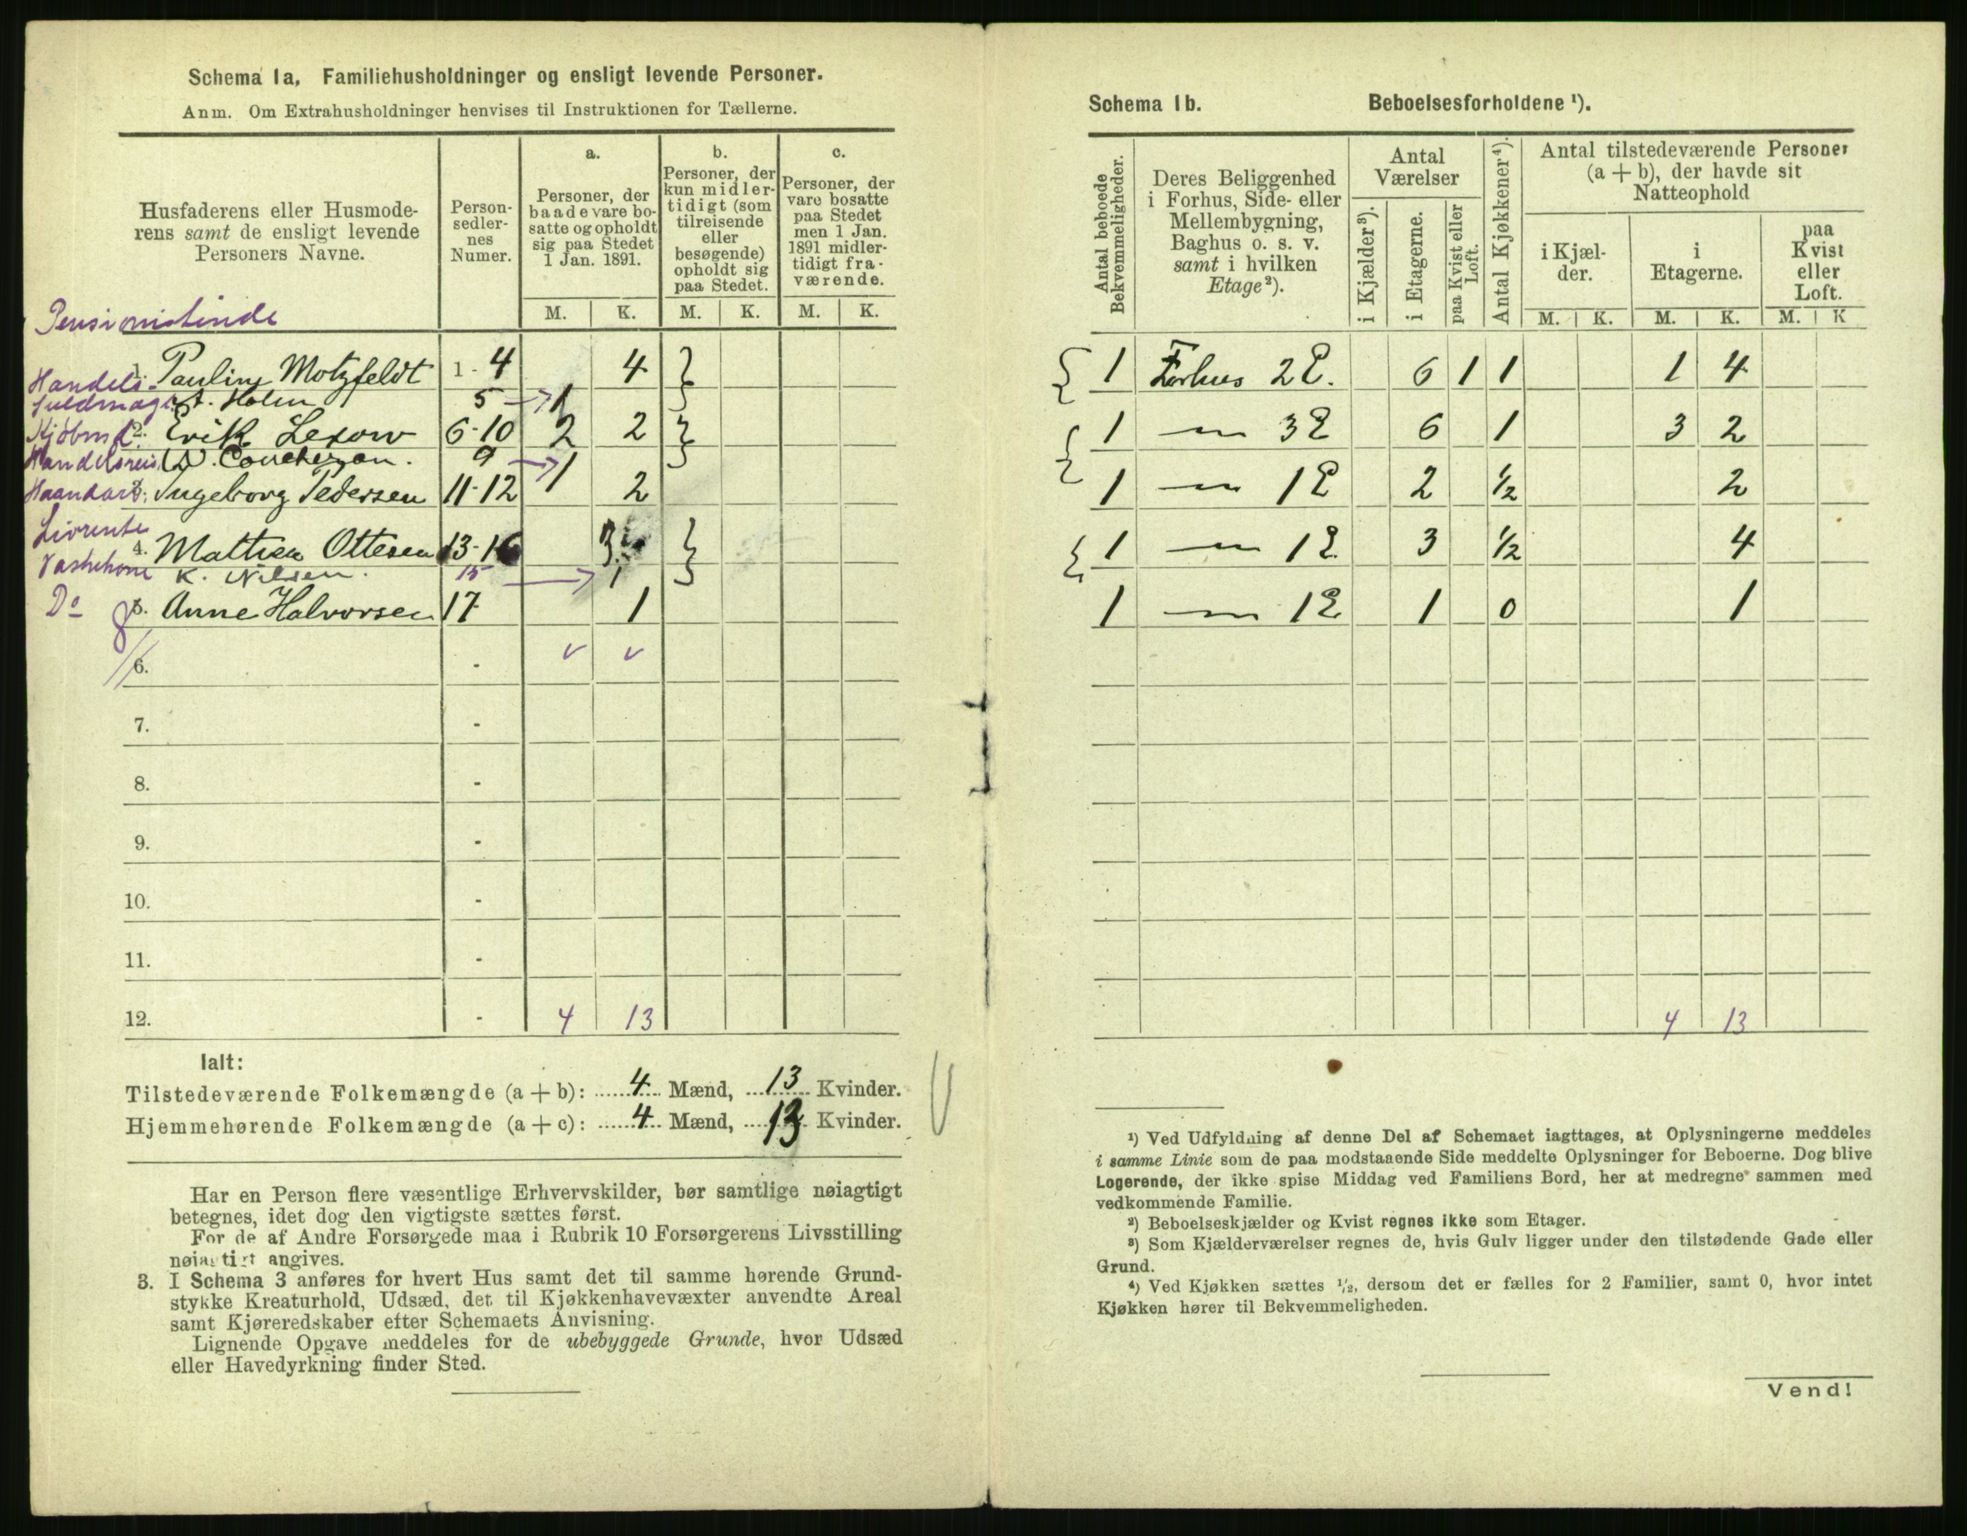 Schema 1a, Familiehusholdninger og ensligt levende Personer.
Anm. Om Extrahusholdninger henvises til Instruktionen for Tællerne.
Husfaderens eller Husmode-
rens samt de ensligt levende
Personers Navne.
Person-
sedler-
nes
Numer.
a.
Personer, der
baade vare bo-
satte og opholdt
sig paa Stedet
1 Jan. 1891.
b.
Personer, der
kun midler-
tidigt (som
tilreisende
eller
besøgende)
opholdt sig
paa Stedet.
c.
Personer, der
vare bosatte
paa Stedet
men 1 Jan.
1891 midler-
tidigt fra-
værende.
M. K. M. K. M. K.
Pensionistinde
1. Pauline Motzfeldt 1 - 4 4
Handels-
fuldmægt. Holm 5 1
Kjøbmd. 2. Erik Lexow 6-10 2 2
Handelsreis. W. Coucheron. 9 1
Haandarb. 3. Ingeborg Pedersen 11-12 2
Livrente
4. Mathea Ottesen 13-16 3
Vaskekone K. Nilsen. 15 1
Do 5. Anne Halvorsen 17 1
6. -
7. -
8. -
9. -
10. -
11. -
12. - 4 13
Ialt:
Tilstedeværende Folkemængde (a + b): 4 Mænd, 13 Kvinder.
Hjemmehørende Folkemængde (a + c): 4 Mænd, 13 Kvinder.
Har en Person flere væsentlige Erhvervskilder, bør samtlige nøiagtigt
betegnes, idet dog den vigtigste sættes først.
For de af Andre Forsørgede maa i Rubrik 10 Forsørgerens Livsstilling
nøiagtigt angives.
3. I Schema 3 anføres for hvert Hus samt det til samme hørende Grund-
stykke Kreaturhold, Udsæd, det til Kjøkkenhavevæxter anvendte Areal
samt Kjøreredskaber efter Schemaets Anvisning.
Lignende Opgave meddeles for de ubebyggede Grunde, hvor Udsæd
eller Havedyrkning finder Sted.
Schema 1b. Beboelsesforholdene ¹).
Antal beboede
Bekvemmeligheder.
Deres Beliggenhed
i Forhus, Side- eller
Mellembygning,
Baghus o. s. v.
samt i hvilken
Etage²).
Antal
Værelser
i Kjælder³).
i Etagerne.
paa Kvist eller
Loft.
Antal Kjøkkener⁴).
Antal tilstedeværende Personer
(a + b), der havde sit
Natteophold
i Kjæl-
der.
i
Etagerne.
paa
Kvist
eller
Loft.
M. K. M. K. M. K
1 Forhus 2 E. 6 1 1 1 4
1 — „ 3 E 6 1 3 2
1 — „ 1 E 2 ½ 2
1 — „ 1 E 3 ½ 4
1 — „ 1 E 1 0 1
4 13
¹) Ved Udfyldning af denne Del af Schemaet iagttages, at Oplysningerne meddeles
i samme Linie som de paa modstaaende Side meddelte Oplysninger for Beboerne. Dog blive
Logerende, der ikke spise Middag ved Familiens Bord, her at medregne sammen med
vedkommende Familie.
²) Beboelseskjælder og Kvist regnes ikke som Etager.
³) Som Kjælderværelser regnes de, hvis Gulv ligger under den tilstødende Gade eller
Grund.
⁴) Ved Kjøkken sættes ½, dersom det er fælles for 2 Familier, samt 0, hvor intet
Kjøkken hører til Bekvemmeligheden.
Vend!